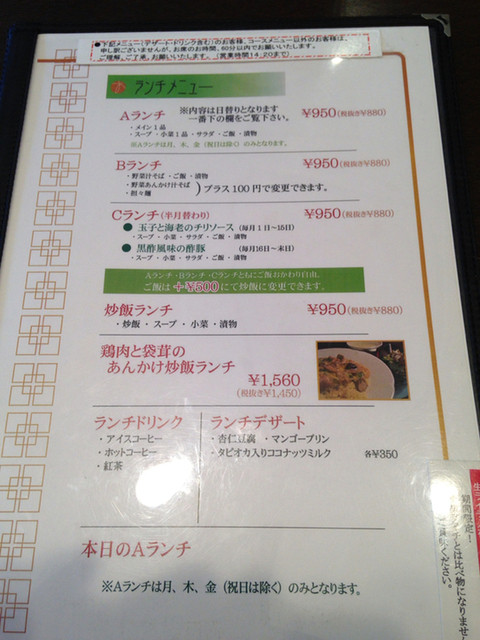 ●下記メニュー(デザート・ドリンク含む)のお客様、コースメニュー以外のお客様は、
申し訳ございませんが、お席のお時間、60分以内でお願いいたします。
ご理解、ご了承、お願いいたします。(営業時間14:20まで)
ランチメニュー
Aランチ ※内容は日替りとなります ¥950(税抜き¥880)
一番下の欄をご覧下さい。
・メイン1品
・スープ・小菜1品・サラダ・ご飯・漬物
※Aランチは月、木、金(祝日は除く)のみとなります。
Bランチ ¥950(税抜き¥880)
・野菜汁そば・ご飯・漬物
・野菜あんかけ汁そば
・担々麺
)プラス100円で変更できます。
Cランチ(半月替わり) ¥950(税抜き¥880)
● 玉子と海老のチリソース (毎月1日~15日)
・スープ・小菜・サラダ・ご飯・漬物
● 黒酢風味の酢豚 (毎月16日~末日)
・スープ・小菜・サラダ・ご飯・漬物
Aランチ・Bランチ・Cランチともにご飯おかわり自由。
ご飯は+¥500にて炒飯に変更できます。
炒飯ランチ ¥950(税抜き¥880)
・炒飯・スープ・小菜・漬物
鶏肉と袋茸の
あんかけ炒飯ランチ
¥1,560
(税抜き¥1,450)
ランチドリンク
・アイスコーヒー
・ホットコーヒー
・紅茶
ランチデザート
・杏仁豆腐 ・マンゴープリン
・タピオカ入りココナッツミルク 各¥350
本日のAランチ
※Aランチは月、木、金(祝日は除く)のみとなります。
期間限定!
とは比べ物になりませ
ください。